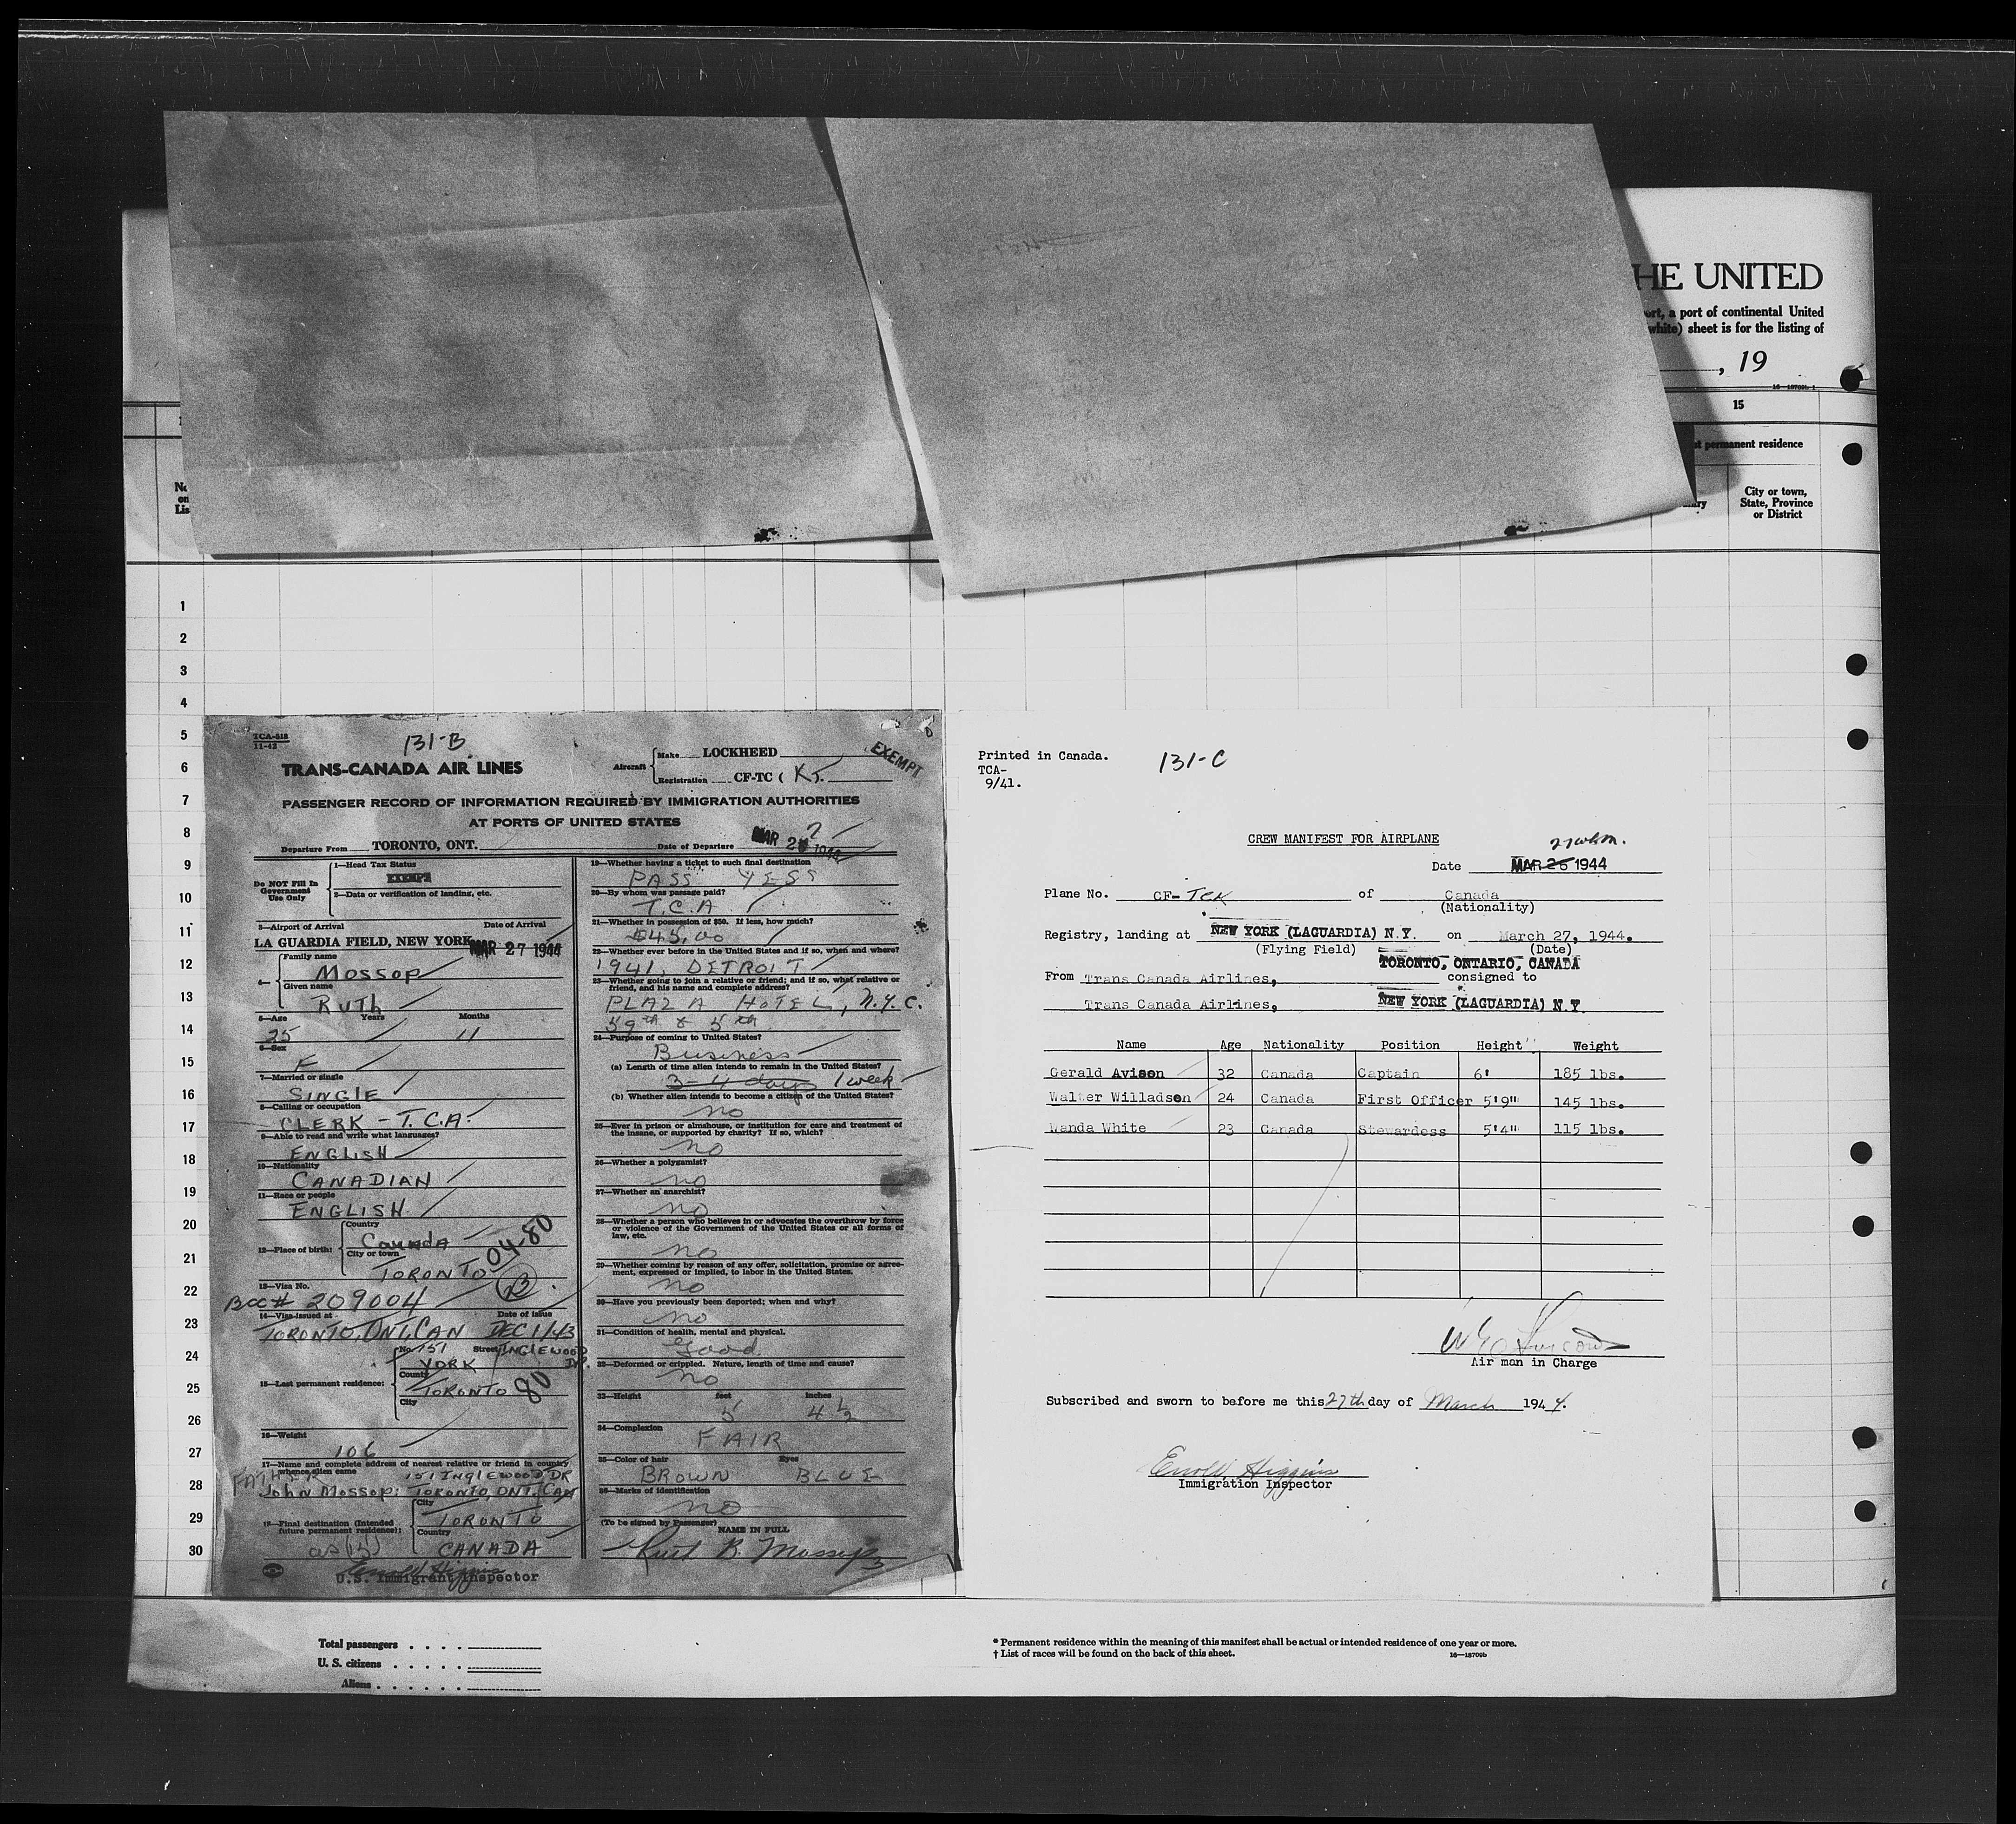 HE UNITED
ort, a port of continental United
white) sheet is for the listing of
, 19
16—18709b-1
15
permanent residence
City or town,
State, Province
or District
1
2
3
4
5
6
7
8
9
10
11
12
13
14
15
16
17
18
19
20
21
22
23
24
25
26
27
28
29
30
TCA-818
11-42
131-B
TRANS-CANADA AIR LINES
Aircraft
Make LOCKHEED
Registration CF-TC ( K ).
EXEMPT
PASSENGER RECORD OF INFORMATION REQUIRED BY IMMIGRATION AUTHORITIES
AT PORTS OF UNITED STATES
Departure From TORONTO, ONT.
Date of Departure MAR 27 1944
Do NOT Fill In
Government
Use Only
1—Head Tax Status
EXEMPT
2—Data or verification of landing, etc.
3—Airport of Arrival Date of Arrival
LA GUARDIA FIELD, NEW YORK MAR 27 1944
4—
Family name
Mossop
Given name
RUTH
5—Age Years Months
25 11
6—Sex
F
7—Married or single
SINGLE
8—Calling or occupation
CLERK - T.C.A.
9—Able to read and write what languages?
ENGLISH
10—Nationality
CANADIAN
11—Race or people
ENGLISH
12—Place of birth:
Country
Canada
City or town
TORONTO
04-80
B
13—Visa No.
BCC# 209004
14—Visa issued at Date of issue
TORONTO, ONT, CAN DEC 1/43
15—Last permanent residence:
No. 151 Street INGLEWOOD DR.
YORK
County
TORONTO
City
80
16—Weight
106
17—Name and complete address of nearest relative or friend in country
whence alien came
FATHER 151 INGLEWOOD DR
John Mossop: TORONTO, ONT. CAN
18—Final destination (Intended
future permanent residence):
City
TORONTO
Country
CANADA
as (15)
U.S. Immigrant Inspector
19—Whether having a ticket to such final destination
PASS YESS
20—By whom was passage paid?
T.C.A
21—Whether in possession of $50. If less, how much?
$45.00
22—Whether ever before in the United States and if so, when and where?
1941, DETROIT
23—Whether going to join a relative or friend; and if so, what relative or
friend, and his name and complete address?
PLAZA HOTEL, N.Y.C.
59th & 5th
24—Purpose of coming to United States?
Business
(a) Length of time alien intends to remain in the United States?
3-4 days 1 week
(b) Whether alien intends to become a citizen of the United States?
no
25—Ever in prison or almshouse, or institution for care and treatment of
the insane, or supported by charity? If so, which?
no
26—Whether a polygamist?
no
27—Whether an anarchist?
no
28—Whether a person who believes in or advocates the overthrow by force
or violence of the Government of the United States or all forms of
law, etc.
no
29—Whether coming by reason of any offer, solicitation, promise or agree-
ment, expressed or implied, to labor in the United States.
no
30—Have you previously been deported; when and why?
no
31—Condition of health, mental and physical.
Good.
32—Deformed or crippled. Nature, length of time and cause?
no
33—Height feet inches
5 4 1/2
34—Complexion
FAIR
35—Color of hair Eyes
BROWN BLUE
36—Marks of identification
no
(To be signed by Passenger)
NAME IN FULL
Ruth B. Mossop
Printed in Canada.
TCA-
9/41.
131-C
CREW MANIFEST FOR AIRPLANE
Date MAR 25 1944
Plane No. CF- TCK of Canada
(Nationality)
Registry, landing at NEW YORK (LAGUARDIA) N.Y. on March 27, 1944.
(Flying Field) (Date)
TORONTO, ONTARIO, CANADA
From Trans Canada Airlines, consigned to
Trans Canada Airlines, NEW YORK (LAGUARDIA) N.Y.
Name Age Nationality Position Height Weight
Gerald Avison 32 Canada Captain 6' 185 lbs.
Walter Willadson 24 Canada First Officer 5'9" 145 lbs.
Wanda White 23 Canada Stewardess 5'4" 115 lbs.
Air man in Charge
Subscribed and sworn to before me this 27th day of March 1944.
Errol W. Higgins
Immigration Inspector
Total passengers
U. S. citizens
Aliens
* Permanent residence within the meaning of this manifest shall be actual or intended residence of one year or more.
† List of races will be found on the back of this sheet.
16—18709b